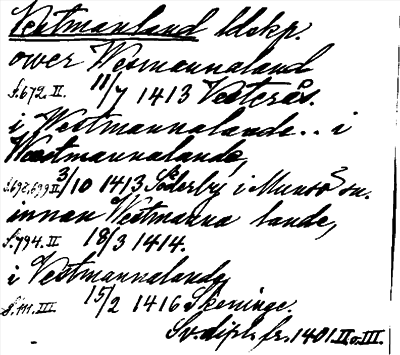 Vestmanland ldskp.
ower Wesmannaland
s. 672. II. 11/7 1413 Vesterås.
i Westmannalande.. i
Wæstmannalande,
s. 698, 699 II 3/10 1413 Söderby i Munsö sn.
innan Westmanna lande,
s. 794. II 18/3 1414.
i Vestmannalande,
s. 111. III. 15/2 1416 Skeninge.
Sv. dipl. fr. 1401. II o. III.